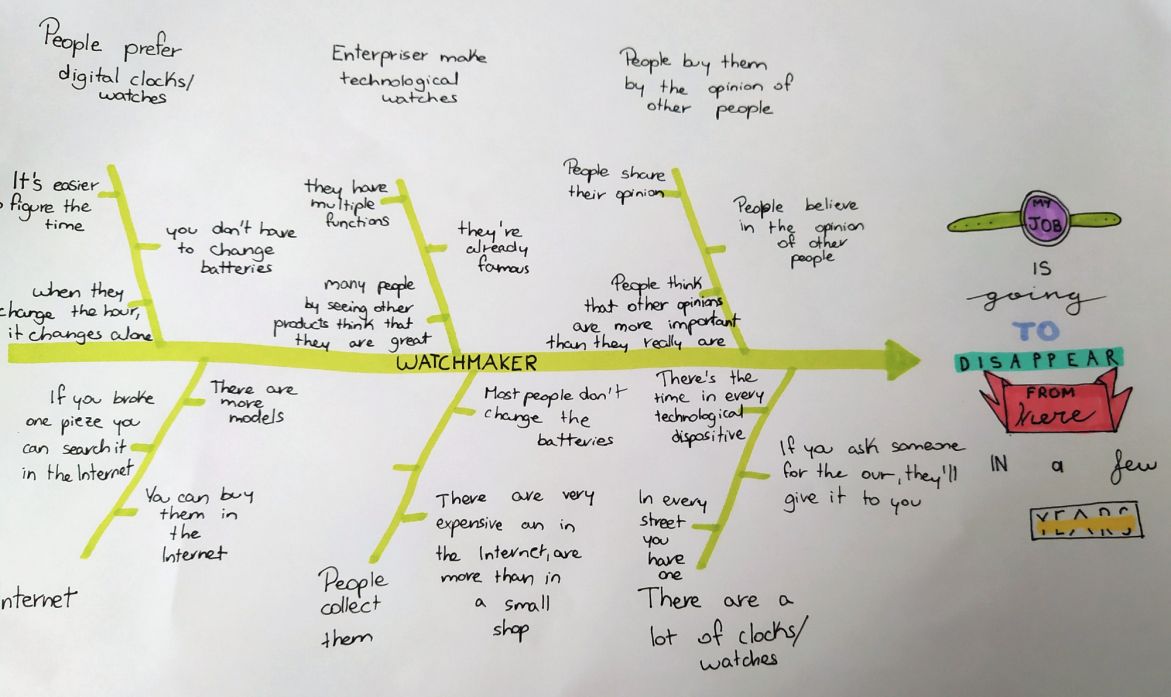 People prefer
digital clocks/
watches
Enterpriser make
technological
watches
People buy them
by the opinion of
other people
It's easier
figure the
time
you don't have
to change
batteries
when they
change the hour,
it changes alone
they have
multiple
functions
they're
already
famous
many people
by seeing other
products think that
they are great
People share
their opinion
People believe
in the opinion
of other
people
People think
that other opinions
are more important
than they really are
WATCHMAKER
If you broke
one pieze you
can search it
in the Internet
There are
more
models
You can buy
them in
the
Internet
nternet
Most people don't
change the
batteries
There are very
expensive an in
the Internet, are
more than in
a small
shop
People
collect
them
There's the
time in every
technological
dispositive
If you ask someone
for the our, they'll
give it to you
In every
street
you
have
one
There are a
lot of clocks/
watches
MY
JOB
IS
going
TO
DISAPPEAR
FROM
Here
IN a few
YEARS